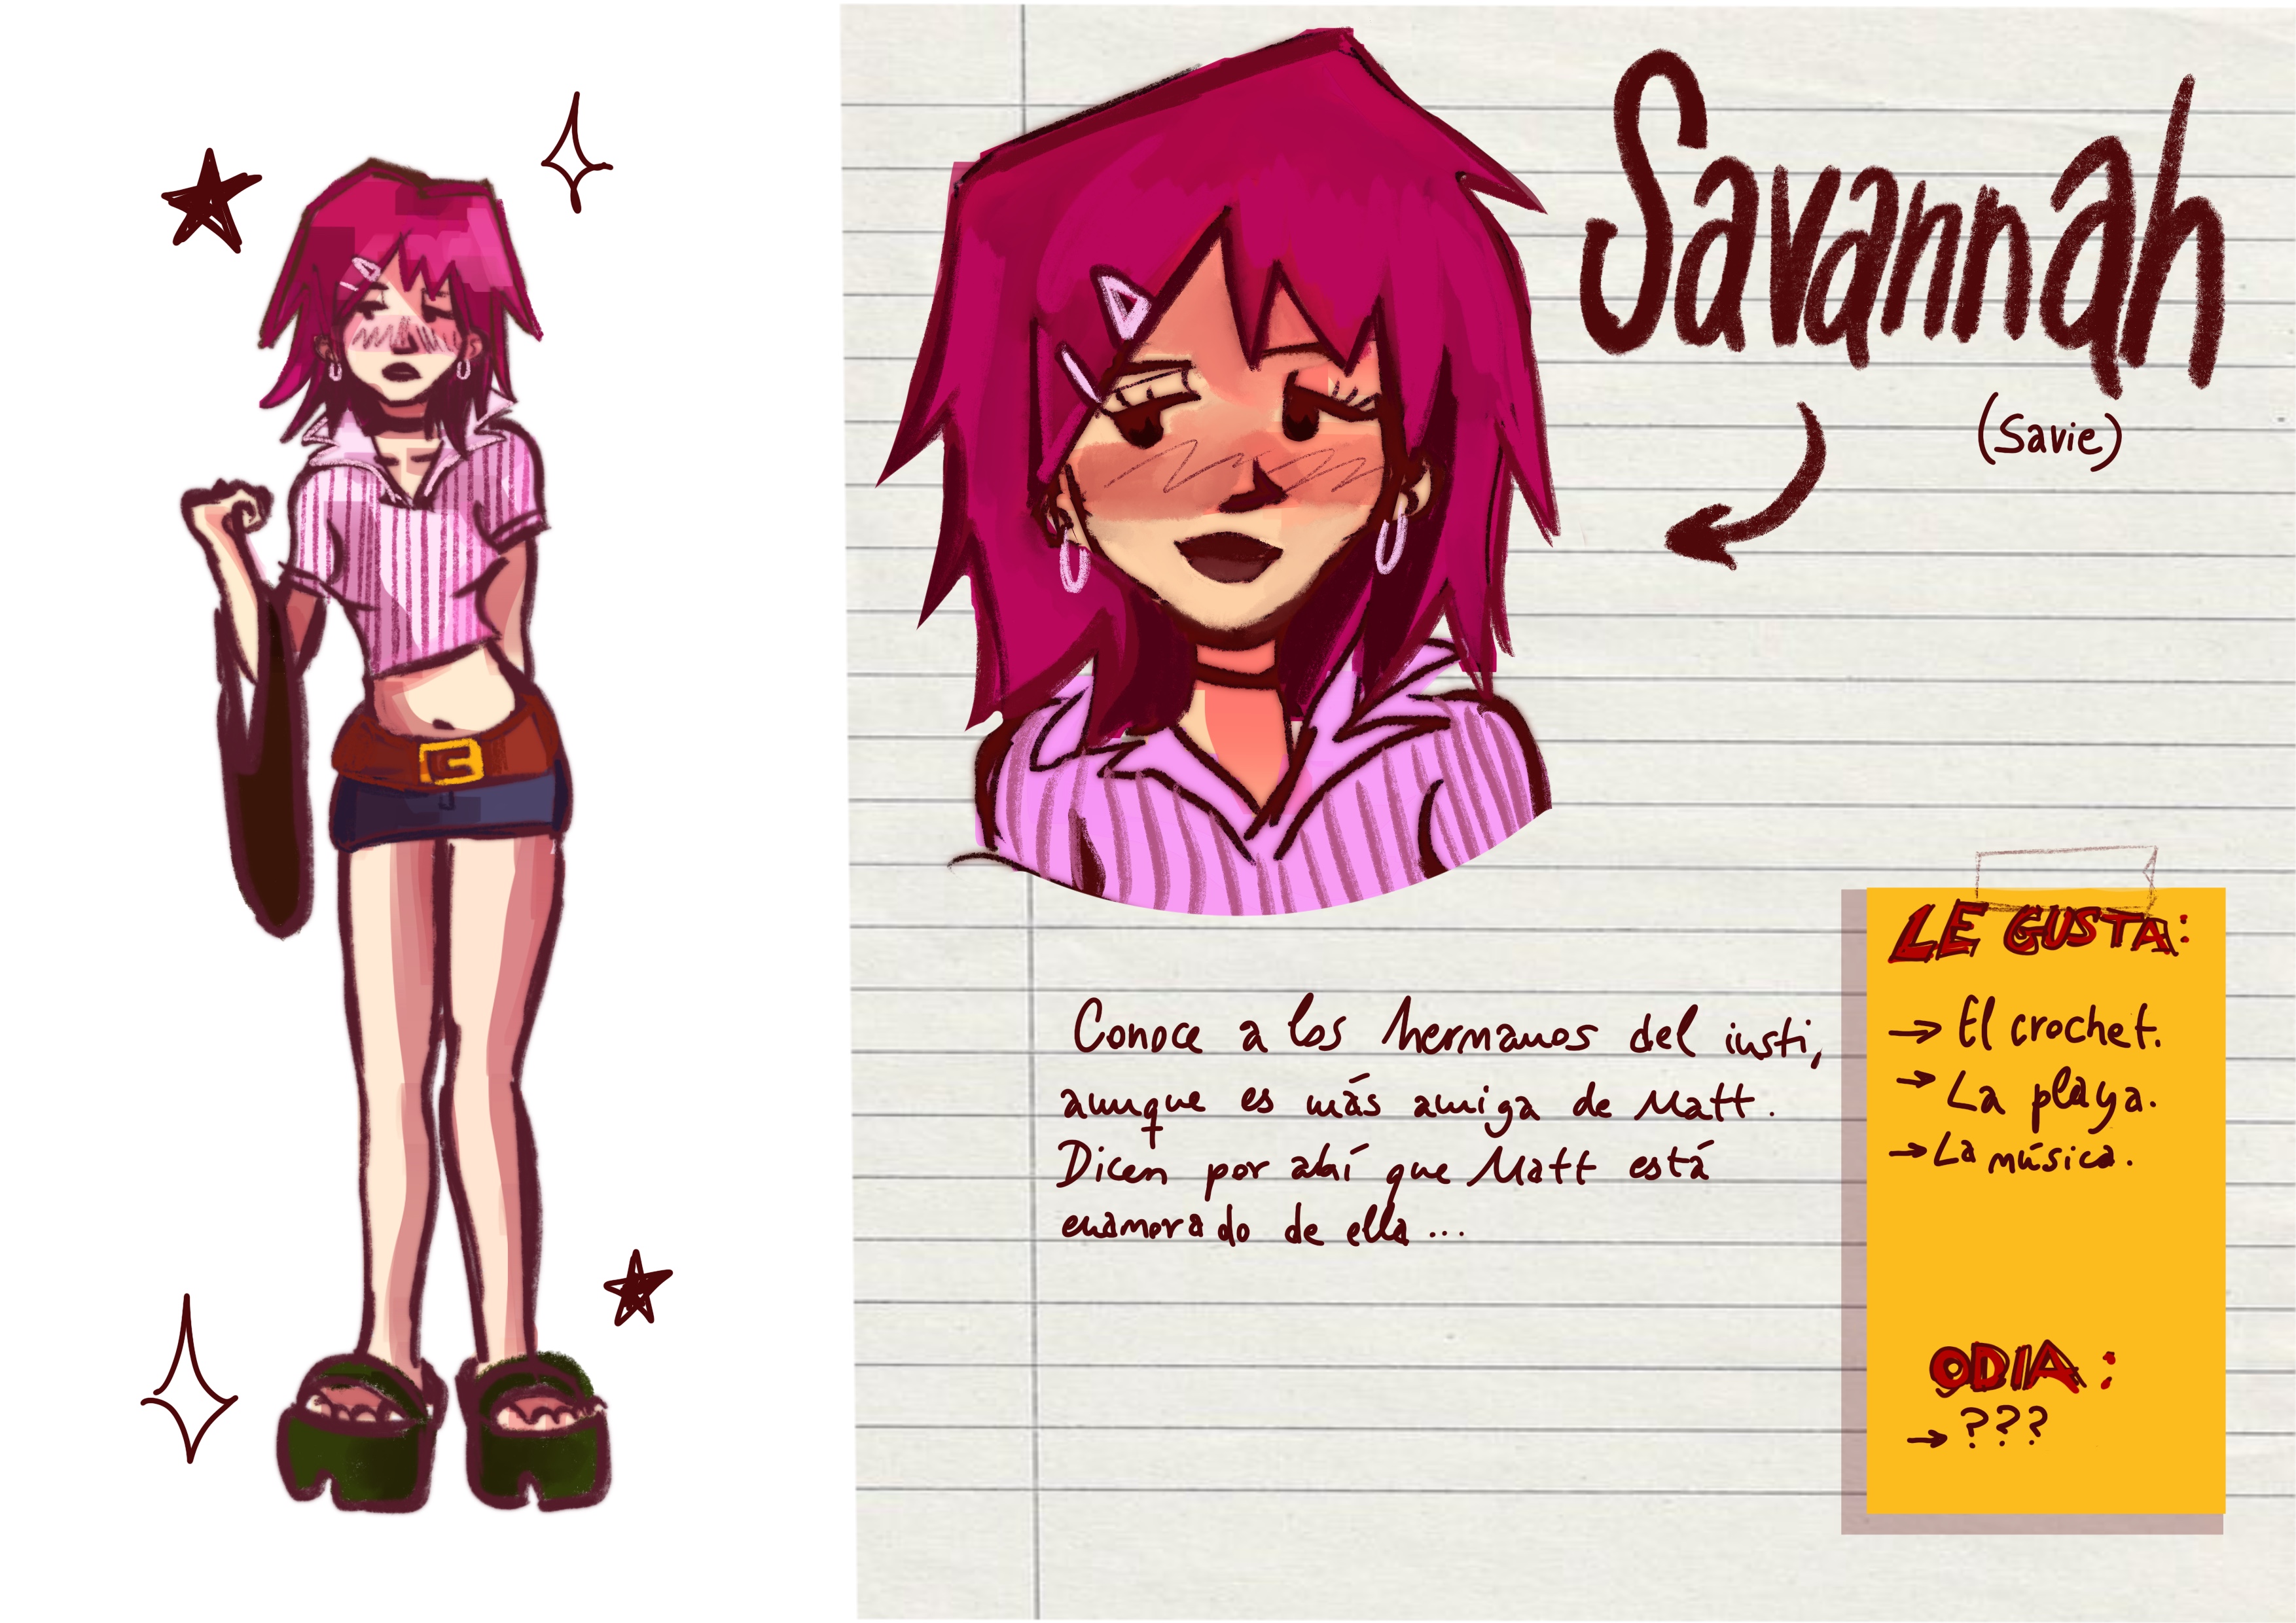 Savannah
(Savie)
Conoce a los hermanos del insti,
aunque es más amiga de Matt.
Dicen por ahí que Matt está
enamorado de ella...
LE GUSTA:
→ El crochet.
→ La playa.
→ La música.
ODIA:
→ ???